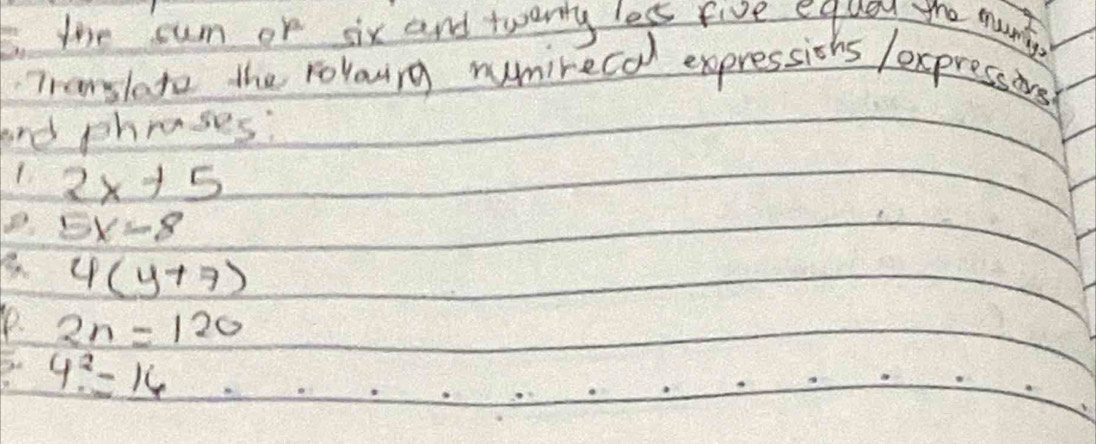 the sum of six and twenty less five equal the
Translate the following numirecal expressions / expressions
and phrases:
1. 2x + 5
2. 5x - 8
3. 4(y + 7)
2n = 120
4² = 16